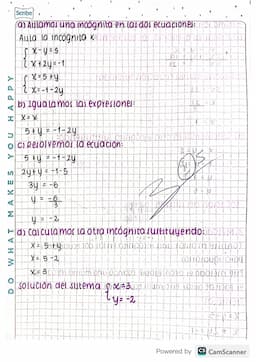 Scribe
DO WHAT MAKES YOU HAPPY
a) Aislamos una incógnita en las dos ecuaciones:
Aisla la incógnita x
x-y=5
x+2y=-1
x=5+y
x=-1-2y
b) Igualamos las expresiones
x=x
5+y=-1-2y
c) Resolvemos la ecuación:
5+y=-1-2y
2y+y=-1-5
3y=-6
y=-6/3
y=-2
d) Calculamos la otra incógnita sustituyendo:
x=5+y
x=5-2
x=3
Solución del sistema { x=3
y=-2
Powered by CS CamScanner